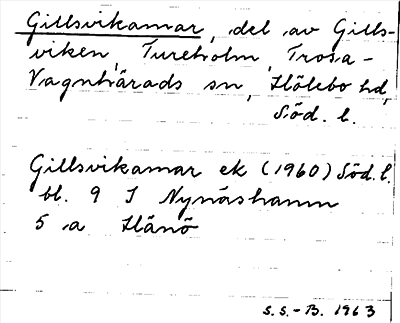 Gillsvikamar, del av Gills-
viken, Tureholm, Trosa-
Vagnhärads sn, Hölebo hd,
Söd. l.
Gillsvikamar ek (1960) Söd. l.
bl. 9 I Nynäshamn
5 a Hånö
S.S.-B. 1963